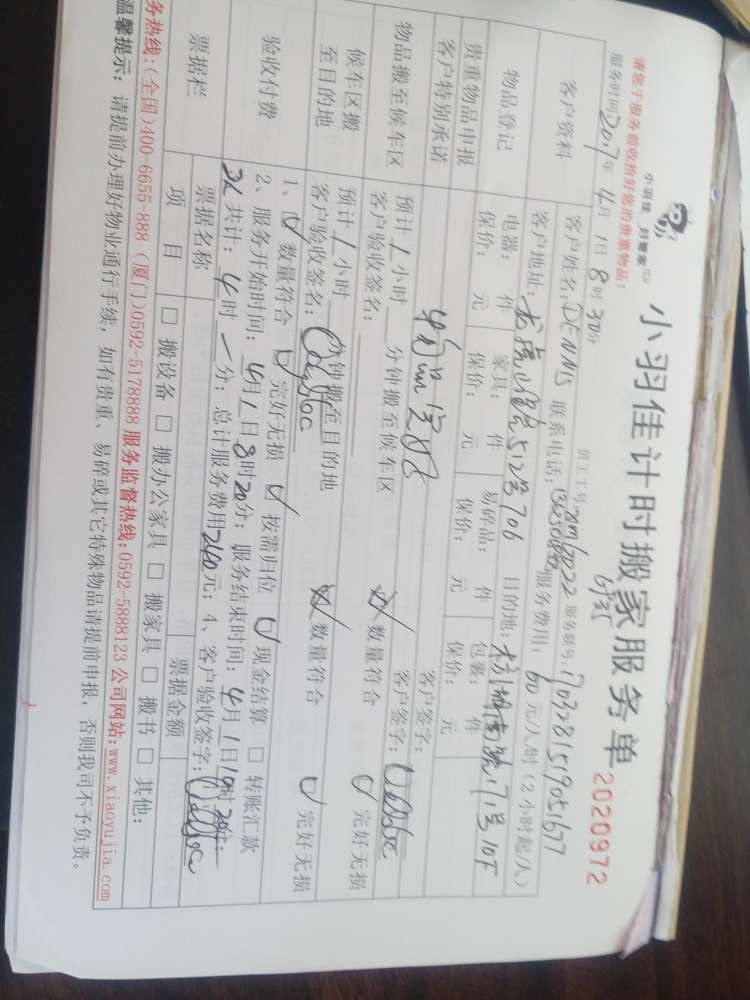 小羽佳计时搬家服务单 2020972
小羽佳 好管家
请您于服务前收拾好您的贵重物品！
服务时间2017年4月1日8时30分 员工工号 服务单号：
客户资料
客户姓名：DENNIS 联系电话： 服务费用：60元/人/时（2小时起/人）
客户地址： 512号706 目的地： 171号10F
物品登记
电器： 件 家具： 件 易碎品： 件 包裹： 件
保价： 元 保价： 元 保价： 元 保价： 元
贵重物品申报
客户特别承诺
客户签字：
物品搬至候车区
预计1小时 分钟搬至候车区 客户签字：
客户验收签名： 数量符合 完好无损
候车区搬至目的地
预计1小时 分钟搬至目的地
客户验收签名： 数量符合 完好无损
验收付费
1、 数量符合 完好无损 按需归位 现金结算 □ 转账汇款
2、服务开始时间：4月1日8时20分；服务结束时间：4月1日10时20分
共计：4时一分；总计服务费用240元；4、客户验收签字：
票据栏
票据名称 票据金额
项目 □ 搬设备 □ 搬办公家具 □ 搬家具 □ 搬书 □ 其他：
务热线：(全国)400-6655-888（厦门)0592-5178888 服务监督热线：0592-5888123 公司网站：www.xiaoyujia.com
温馨提示：请提前办理好物业通行手续，如有贵重、易碎或其它特殊物品请提前申报，否则我司不予负责。